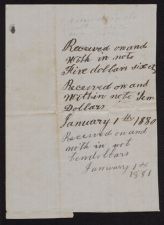 Received on and
With in note
Five dollars
Received on and
Within note Ten
Dollars
January 1th 1880
Received on and
with in not
ten dollars
January 1th
1881